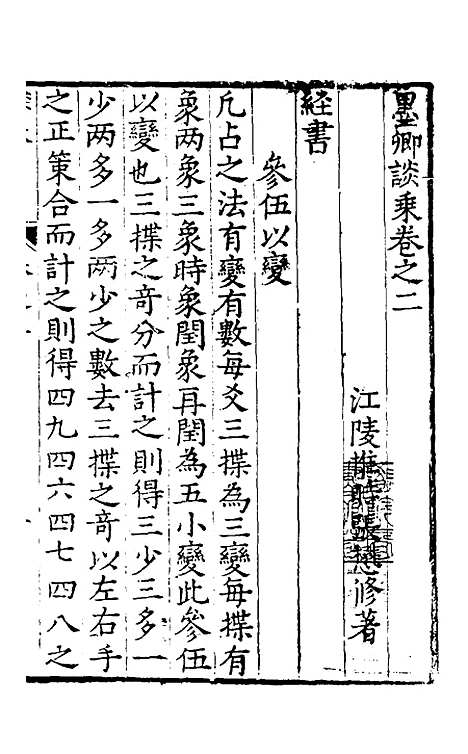 墨卿談乗卷之二
江陵張懋修著
経書
參伍以變
凡占之法有變有數每爻三揲為三變每揲有
象两象三象時象閏象再閏為五小變此參伍
以變也三揲之竒分而計之則得三少三多一
少两多一多两少之數去三揲之竒以左右手
之正策合而計之則得四九四六四七四八之